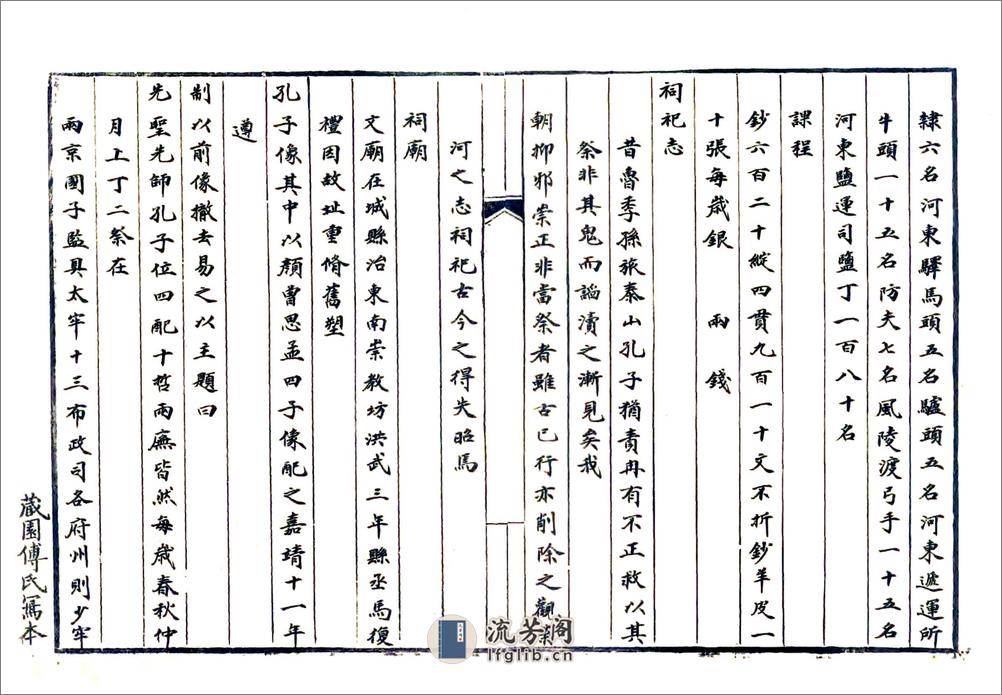 隸六名河東驛馬頭五名驢頭五名河東遞運所
牛頭一十五名防夫七名風陵渡弓手一十五名
河東鹽運司鹽丁一百八十名
課程
鈔六百二十綻四貫九百一十文不折鈔羊皮一
十張每歲銀 兩 錢
祠祀志
昔魯季孫旅泰山孔子猶責冉有不正救以其
祭非其鬼而謟瀆之漸見矣我
朝抑邪崇正非當祭者雖古已行亦削除之觀
河之志祠祀古今之得失昭焉
祠廟
文廟在城縣治東南崇教坊洪武三年縣丞馬復
禮因故址重脩舊塑
孔子像其中以顏曾思孟四子像配之嘉靖十一年
遵
制以前像撤去易之以主題曰
先聖先師孔子位四配十哲兩廡皆然每歲春秋仲
月上丁二祭在
兩京國子監具太牢十三布政司各府州則少牢
藏園傅氏寫本
流芳阁
lfglib.cn